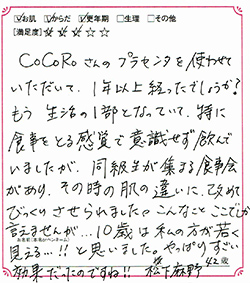 ☑お肌 ☑からだ ☑更年期 □生理 □その他
[満足度]★★★☆☆
CoCoRoさんのプラセンタを使わせて
いただいて、1年以上経ったでしょうか?
もう生活の1部となっていて、特に
食事をとる感覚で意識せず飲んで
いましたが、同級生が集まる食事会
があり、その時の肌の違いに、改めて
びっくりさせられました。こんなことここでしか
言えませんが…10歳は私の方が若く
見える…!!と思いました。やっぱりすごい
お名前(本名かペンネーム)
効果だったのですね!! 松下麻野 42歳